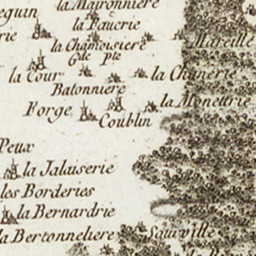 la Maironniere
eguin
la Fauerie
rie
Mareille
la Chamoisiere
Gde pte
la Cour
la Chanerie
Batonniere
Forge
la Monetrie
Coublin
Peux
la Jalauserie
les Borderies
la Bernardrie
la Bertonneliere
Saur